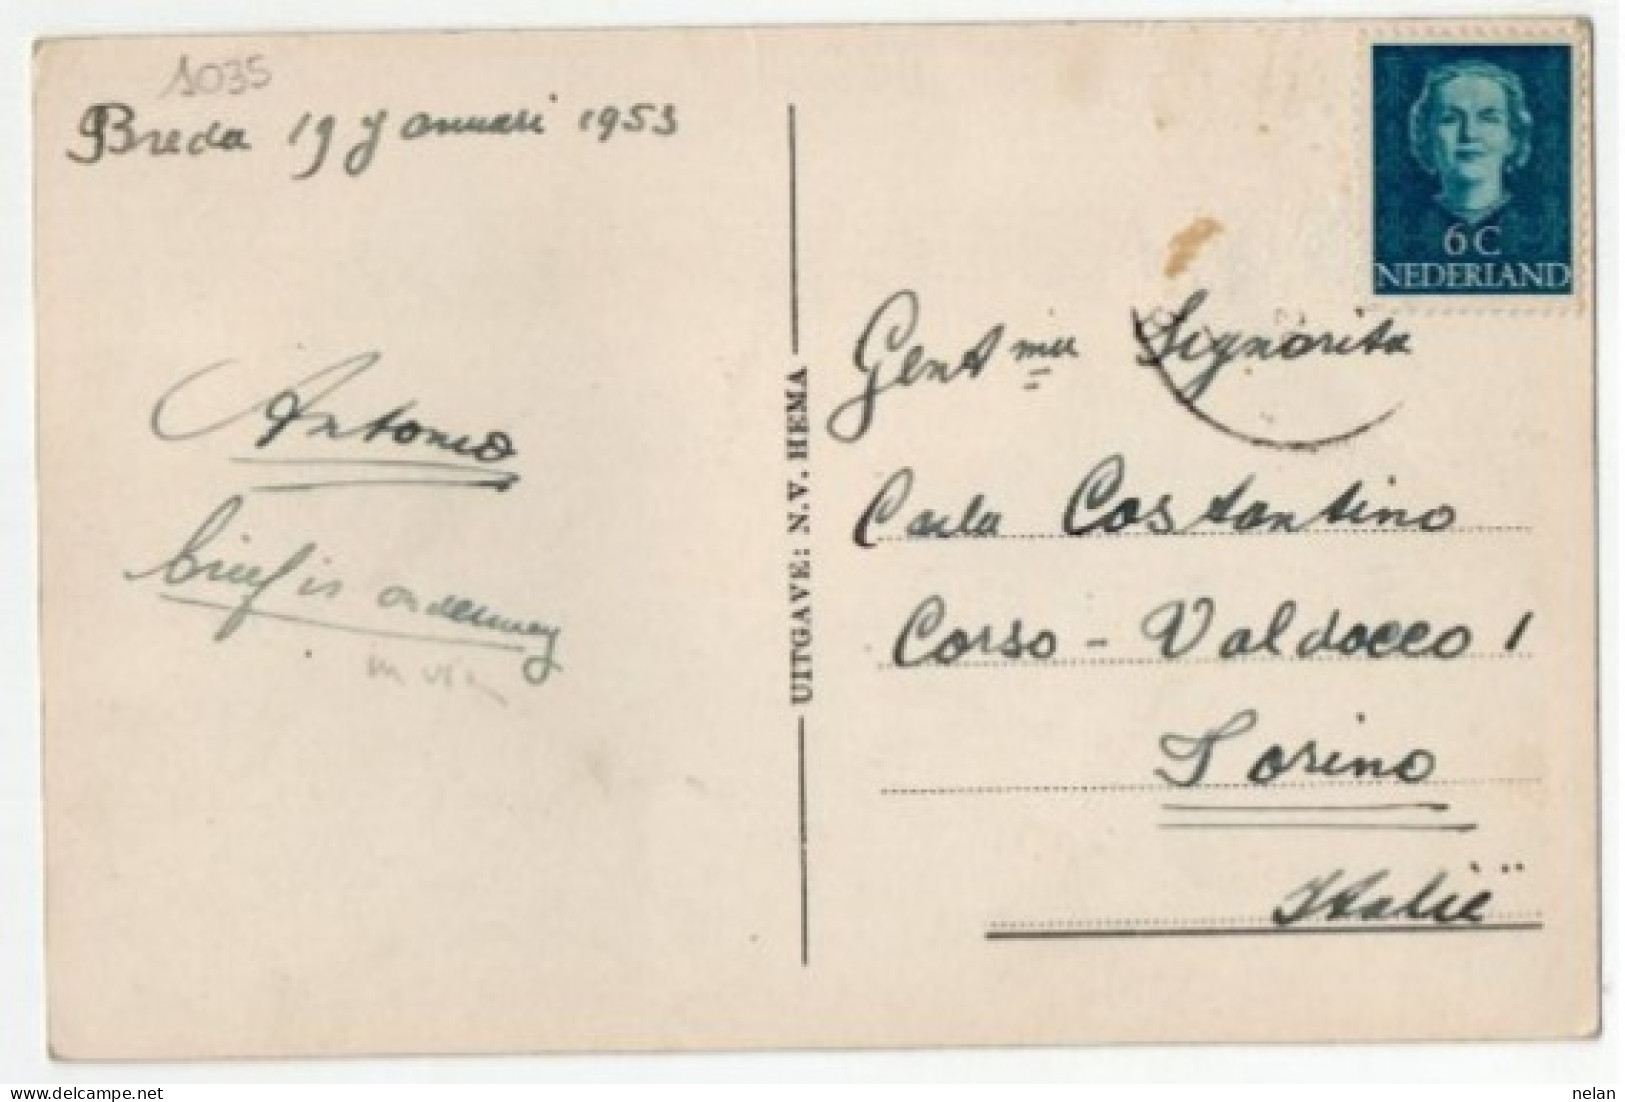 1035
Breda 19 Januari 1953
Antonio
brief is onderweg
UITGAVE: N.V. HEMA
6C
NEDERLAND
Gent ma Signorita
Carla Costantino
Corso - Valdocco 1
Torino
Italië
nelan